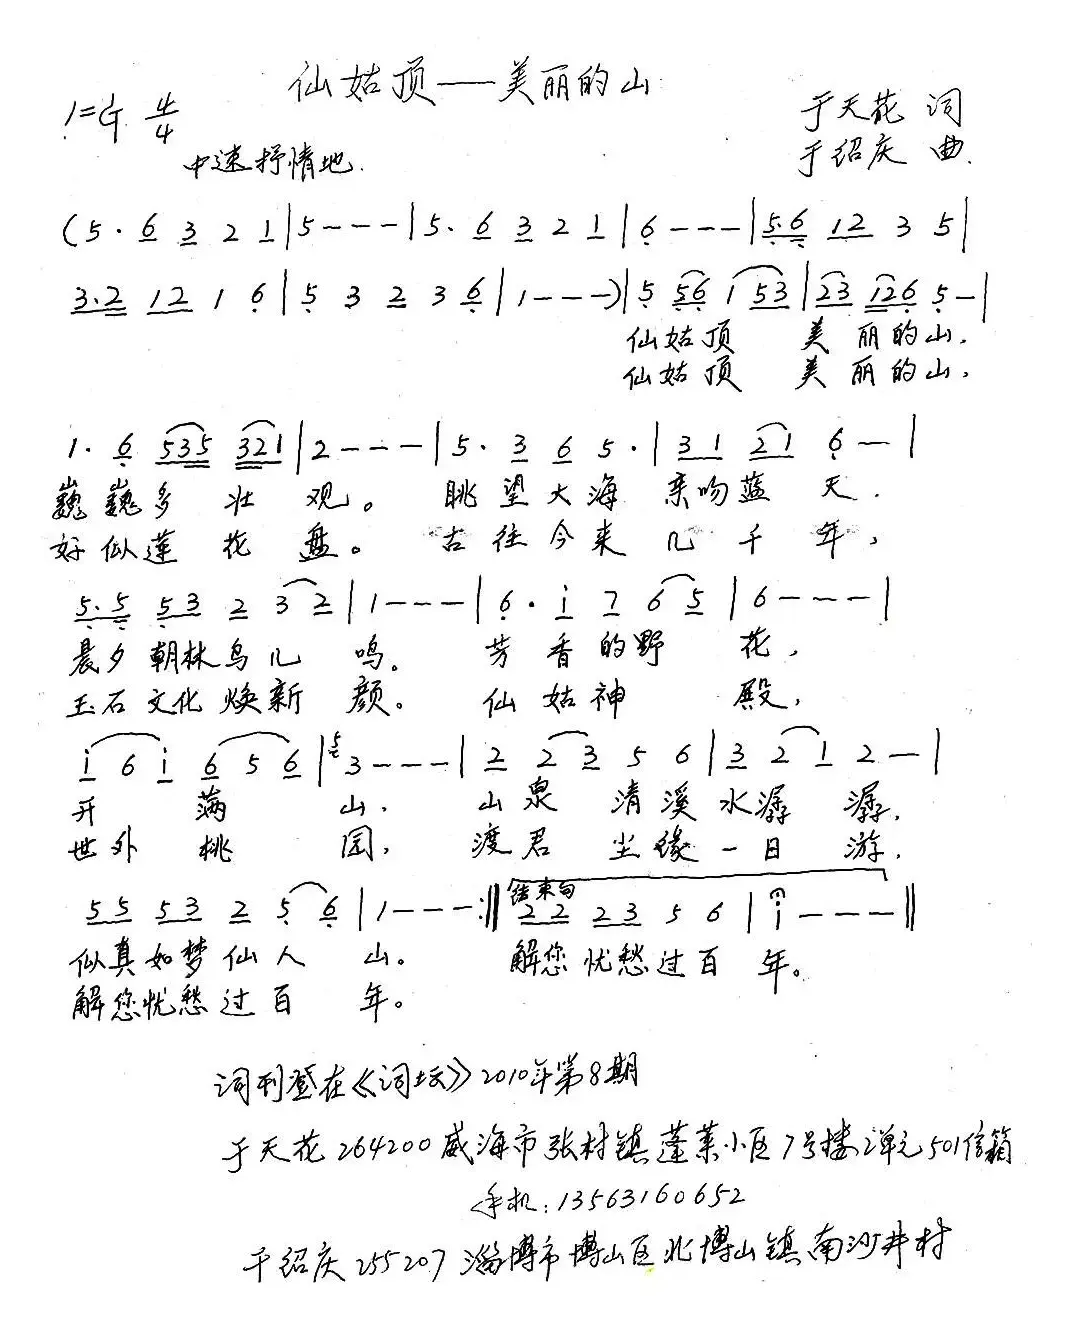 仙姑顶——美丽的山
1=G 4/4
于天花 词
中速抒情地.
于绍庆 曲.
(5· 6 3 2 1|5---|5· 6 3 2 1|6---|5·6 12 3 5|
3·2 12 1 6|5 3 2 3 6|1---)|5 56 1 53|23 126 5-|
仙姑顶 美丽的山,
仙姑顶 美丽的山,
1· 6 535 321|2---|5· 3 6 5·|31 21 6-|
巍巍多壮观。 眺望大海亲吻蓝天.
好似莲花盘。 古往今来几千年,
5·5 53 2 3 2|1---|6· i 7 6 5|6---|
晨夕朝林鸟儿鸣。 芳香的野花,
玉石文化焕新颜。 仙姑神殿,
i 6 i 6 5 6|5 3---|2 2 3 5 6|3 2 1 2-|
开满山. 山泉清溪水潺潺,
世外桃园, 渡君尘缘一日游.
55 53 2 5 6|1---:‖结束句 22 23 5 6|i----‖
似真如梦仙人山。 解您忧愁过百年。
解您忧愁过百年。
词刊登在《词坛》2010年第8期
于天花264200威海市张村镇蓬莱小区7号楼2单元501信箱
手机:13563160652
于绍庆255207淄博市博山区北博山镇南沙井村